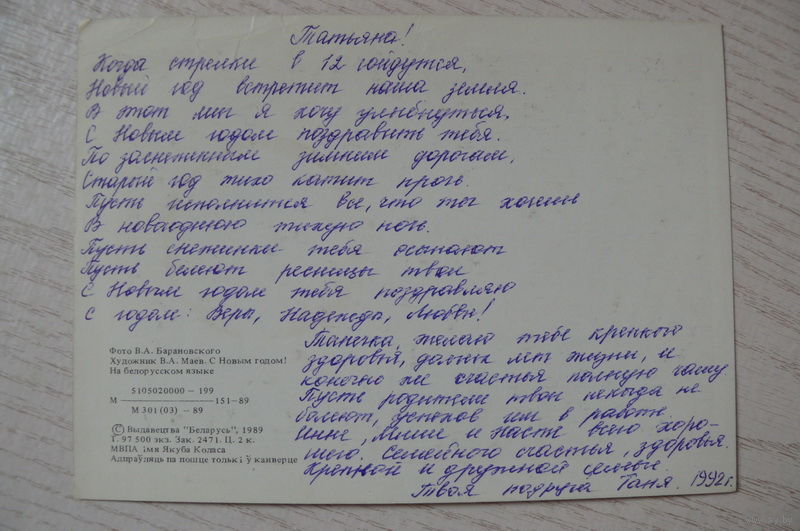 Татьяна!
Когда стрелки в 12 сойдутся,
Новый год встретит наша земля.
В этот миг я хочу улыбнуться,
С Новым годом поздравить тебя.
По заснеженным зимним дорогам,
Старый год тихо катит прочь.
Пусть исполнится все, что ты хочешь
В новогоднюю тихую ночь.
Пусть снежинки тебя осыпают
Пусть белеют ресницы твои
С Новым годом тебя поздравляю
С годом: Веры, Надежды, Любви!
Танечка, желаю тебе крепкого
здоровья, долгих лет жизни, и
конечно же счастья полную чашу
Пусть родители твои никогда не
болеют, успехов им в работе.
Инне, Мише и Насте всего хоро-
шего. Семейного счастья, здоровья.
Крепкой и дружной семьи.
Твоя подруга Таня. 1992 г.
Фото В.А. Барановского
Художник В.А. Маев. С Новым годом!
На белорусском языке
5105020000 – 199
М 151–89
М 301 (03) – 89
© Выдавецтва "Беларусь", 1989
Т. 97 500 экз. Зак. 2471. Ц. 2 к.
МВПА імя Якуба Коласа
Адпраўляць па пошце толькі ў канверце